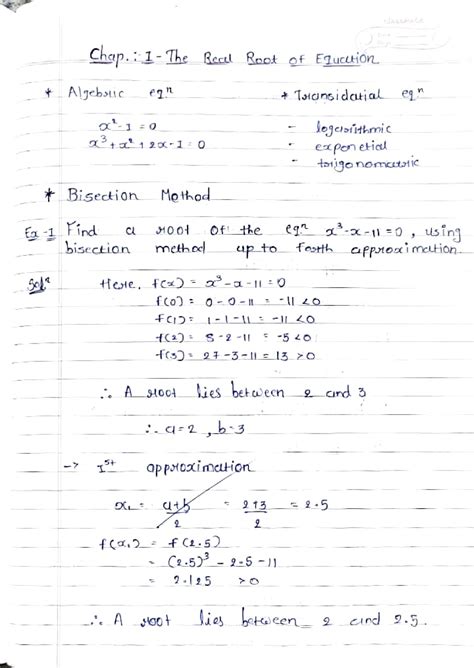 classmate
Chap.: 1 - The Real Root of Equation
* Algebric eqⁿ * Transidatial eqⁿ
x² - 1 = 0 - logarithmic
x³ + x² + 2x - 1 = 0 - expenetial
- trigonometric
* Bisection Method
Ex-1 Find a root of the eqⁿ x³-x-11=0, using
bisection method up to forth approximation.
Solⁿ Here, f(x) = x³-x-11=0
f(0) = 0-0-11 = -11 <0
f(1) = 1-1-11 = -11 <0
f(2) = 8-2-11 = -5 <0
f(3) = 27-3-11 = 13 >0
∴ A root lies between 2 and 3
∴ a=2, b=3
-> 1st approximation
x₁ = a+b/2 = 2+3/2 = 2.5
f(x₁) = f(2.5)
= (2.5)³ - 2.5 - 11
= 2.125 >0
∴ A root lies between 2 and 2.5.